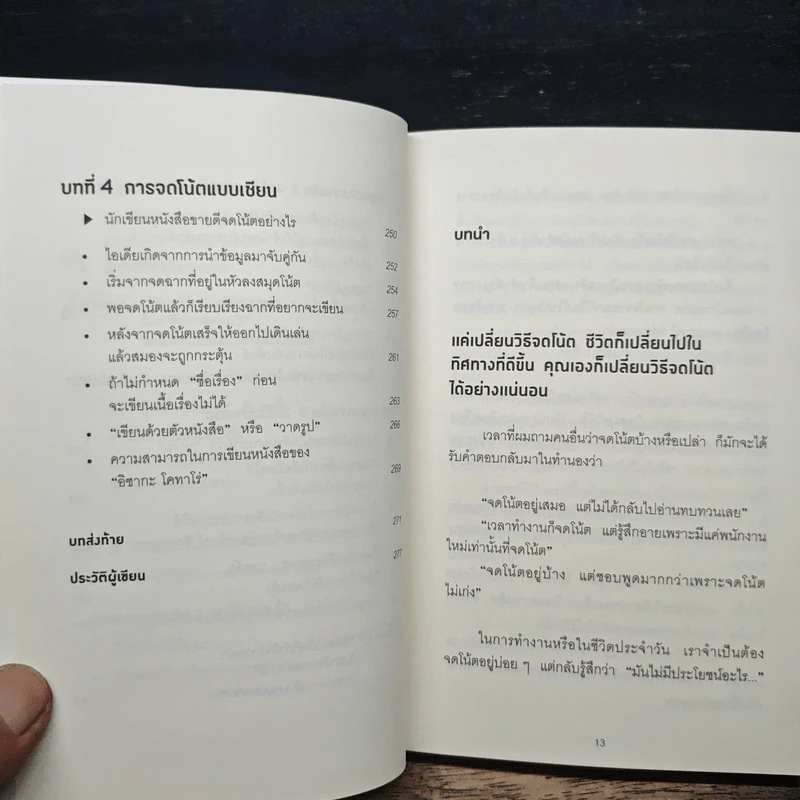 บทที่ 4 การจดโน้ตแบบเซียน
▶ นักเขียนหนังสือขายดีจดโน้ตอย่างไร 250
• ไอเดียเกิดจากการนำข้อมูลมาจับคู่กัน 252
• เริ่มจากจดฉากที่อยู่ในหัวลงสมุดโน้ต 254
• พอจดโน้ตแล้วก็เรียบเรียงฉากที่อยากจะเขียน 257
• หลังจากจดโน้ตเสร็จให้ออกไปเดินเล่น
แล้วสมองจะถูกกระตุ้น 261
• ถ้าไม่กำหนด “ชื่อเรื่อง” ก่อน
จะเขียนเนื้อเรื่องไม่ได้ 263
• “เขียนด้วยตัวหนังสือ” หรือ “วาดรูป” 266
• ความสามารถในการเขียนหนังสือของ
“อิซากะ โคทาโร่” 269
บทส่งท้าย 271
ประวัติผู้เขียน 277
บทนำ
แค่เปลี่ยนวิธีจดโน้ต ชีวิตก็เปลี่ยนไปใน
ทิศทางที่ดีขึ้น คุณเองก็เปลี่ยนวิธีจดโน้ต
ได้อย่างแน่นอน
เวลาที่ผมถามคนอื่นว่าจดโน้ตบ้างหรือเปล่า ก็มักจะได้
รับคำตอบกลับมาในทำนองว่า
“จดโน้ตอยู่เสมอ แต่ไม่ได้กลับไปอ่านทบทวนเลย”
“เวลาทำงานก็จดโน้ต แต่รู้สึกอายเพราะมีแค่พนักงาน
ใหม่เท่านั้นที่จดโน้ต”
“จดโน้ตอยู่บ้าง แต่ชอบพูดมากกว่าเพราะจดโน้ต
ไม่เก่ง”
ในการทำงานหรือในชีวิตประจำวัน เราจำเป็นต้อง
จดโน้ตอยู่บ่อย ๆ แต่กลับรู้สึกว่า “มันไม่มีประโยชน์อะไร...”
13